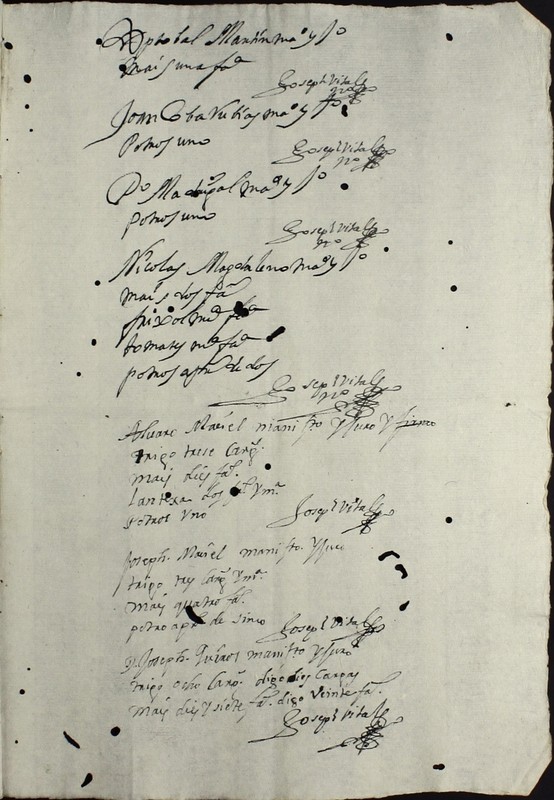 Xptobal Martin mao y Jo
mais una fa
Joseph Vital
no
Joan Cobarrubias mao y Jo
Potros uno
Joseph Vital
no
Po Madrigal mao y Jo
potros uno
Joseph Vital
no
Nicolas Magdaleno mao y Jo
mais dos fa
frixol ma fa
tomates ma fa
potros de dos
Joseph Vital
no
Alvaro Mariel manifto y Juro y firmo
trigo trese Carg.
mais dies fa.
lantexa dos fa y ma
potros Uno
Joseph Vital
Joseph. Mariel manifto. y Juro
trigo tres Carg. y ma.
mais quatro fa.
potro apl de sinco
Joseph Vital
D. Joseph. Quiros manifto y Juro
trigo ocho Carg. digo dies Cargas
mais dies y siete fa. digo Veinte fa.
Joseph Vital